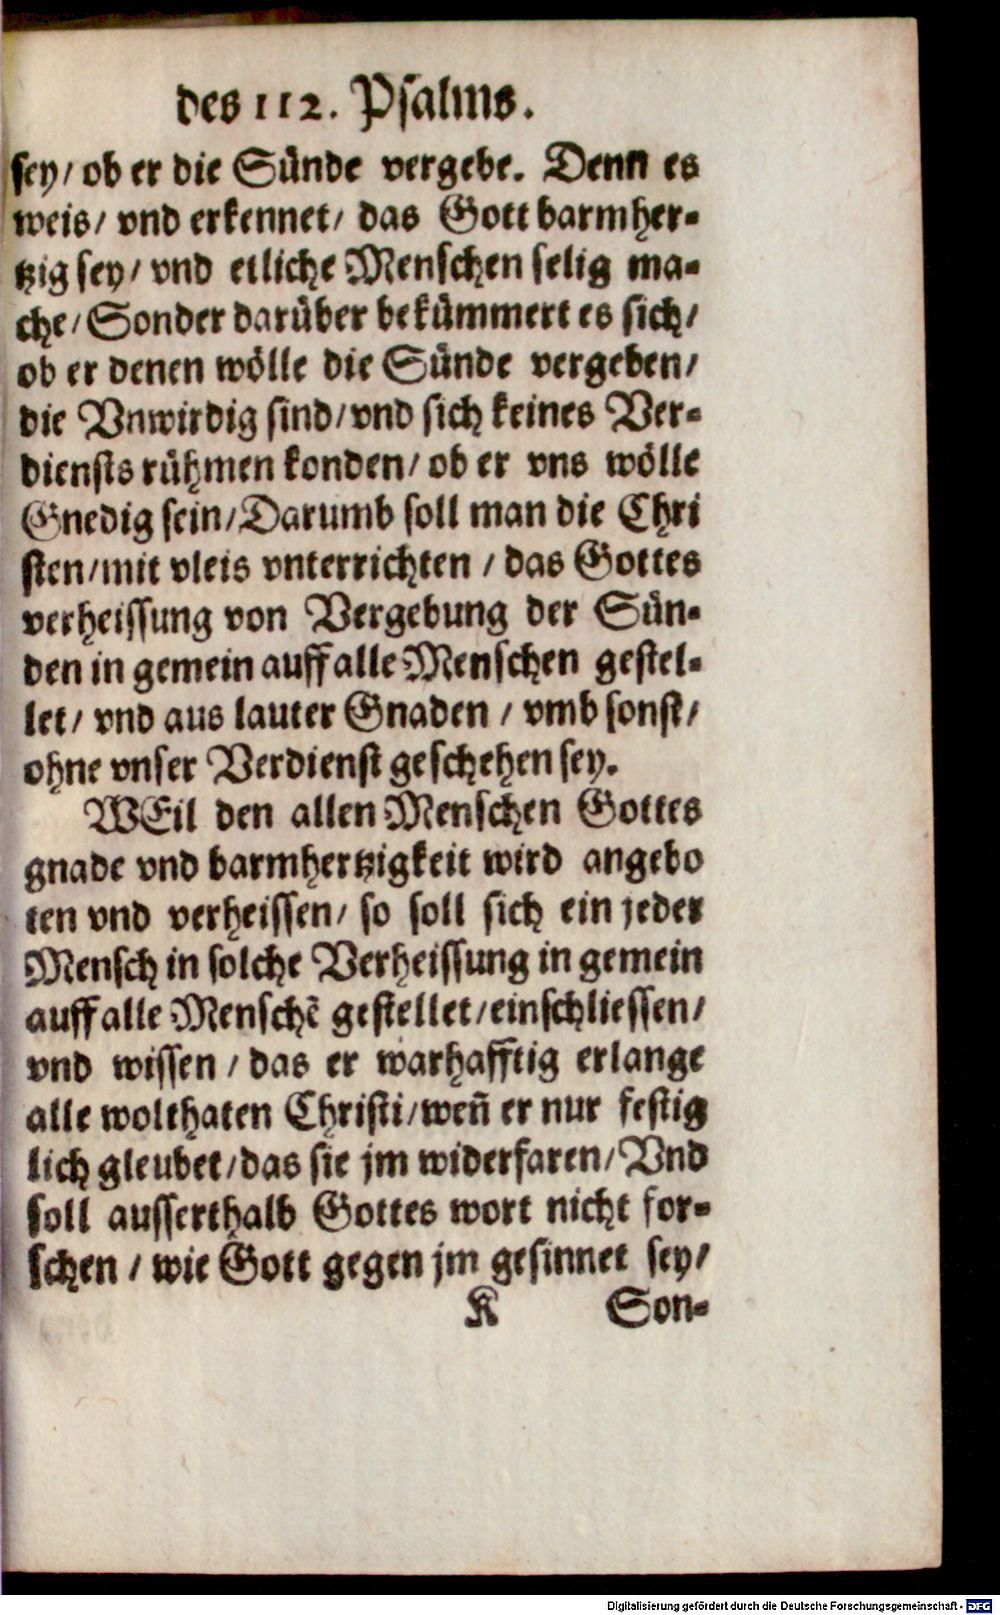 des 112. Psalms.
sey/ ob er die Sünde vergebe. Denn es
weis/ vnd erkennet/ das Gott barmher-
tzig sey/ vnd etliche Menschen selig ma-
che/ Sonder darüber bekümmert es sich/
ob er denen wölle die Sünde vergeben/
die Vnwirdig sind/ vnd sich keines Ver-
diensts rühmen konden/ ob er vns wölle
Gnedig sein/ Darumb soll man die Chri
sten/ mit vleis vnterrichten / das Gottes
verheissung von Vergebung der Sün-
den in gemein auff alle Menschen gestel-
let/ vnd aus lauter Gnaden / vmb sonst/
ohne vnser Verdienst geschehen sey.
WEil den allen Menschen Gottes
gnade vnd barmhertzigkeit wird angebo
ten vnd verheissen/ so soll sich ein jeder
Mensch in solche Verheissung in gemein
auff alle Menschē gestellet/ einschliessen/
vnd wissen / das er warhafftig erlange
alle wolthaten Christi/ weñ er nur festig
lich gleubet/ das sie jm widerfaren/ Vnd
soll ausserthalb Gottes wort nicht for-
schen / wie Gott gegen jm gesinnet sey/
K Son-
Digitalisierung gefördert durch die Deutsche Forschungsgemeinschaft - DFG